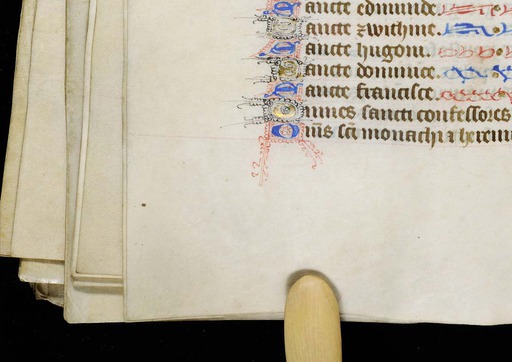 Sancte edmunde.
Sancte zwithine.
Sancte hugoni.
Sancte dominice.
Sancte francisce.
Omnes sancti confessores
Om̄s sc̄i monachi & heremi